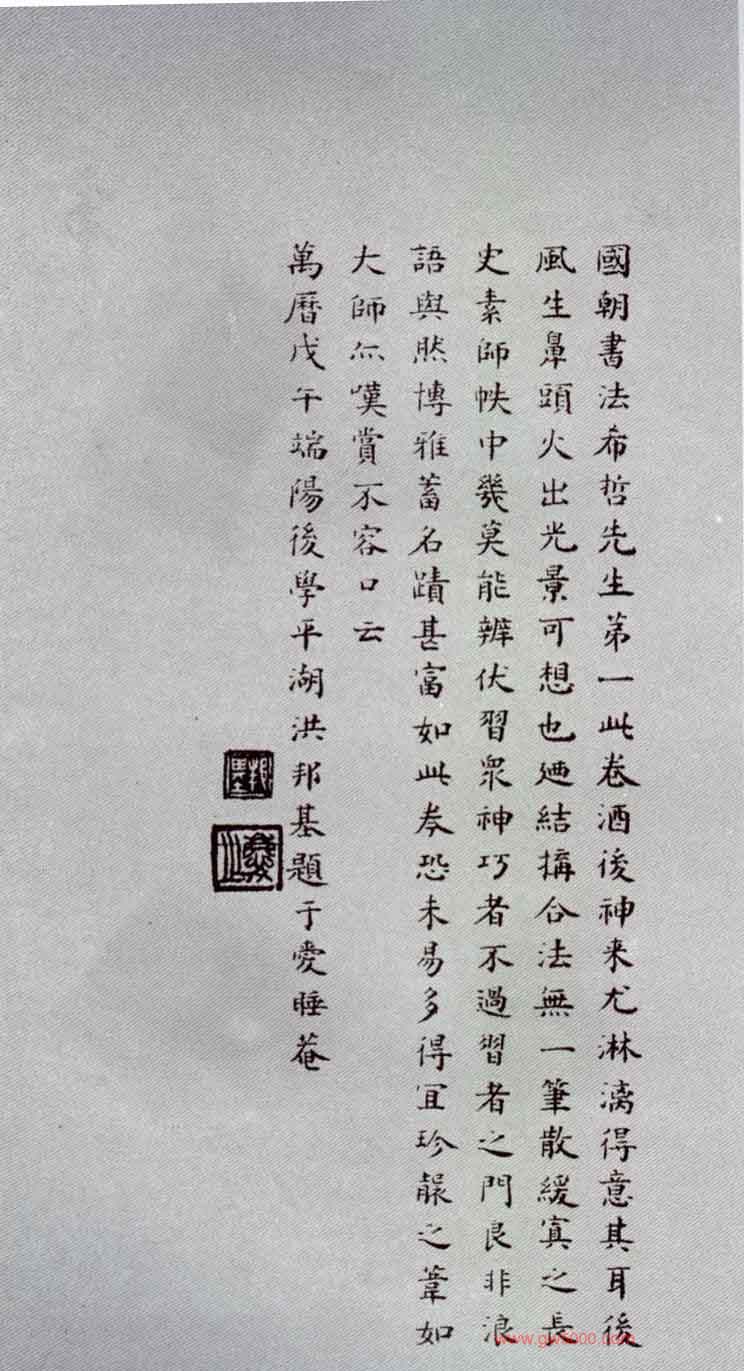 國朝書法希哲先生第一此卷酒後神來尤淋漓得意其耳後
風生鼻頭火出光景可想也廼結搆合法無一筆散緩寘之長
史素師帙中幾莫能辨伏習衆神巧者不過習者之門良非浪
語與然博雅蓄名蹟甚富如此卷恐未易多得宜珍襲之葦如
大師亦嘆賞不容口云
萬曆戊午端陽後學平湖洪邦基題于愛睡菴
www.gw5000.com